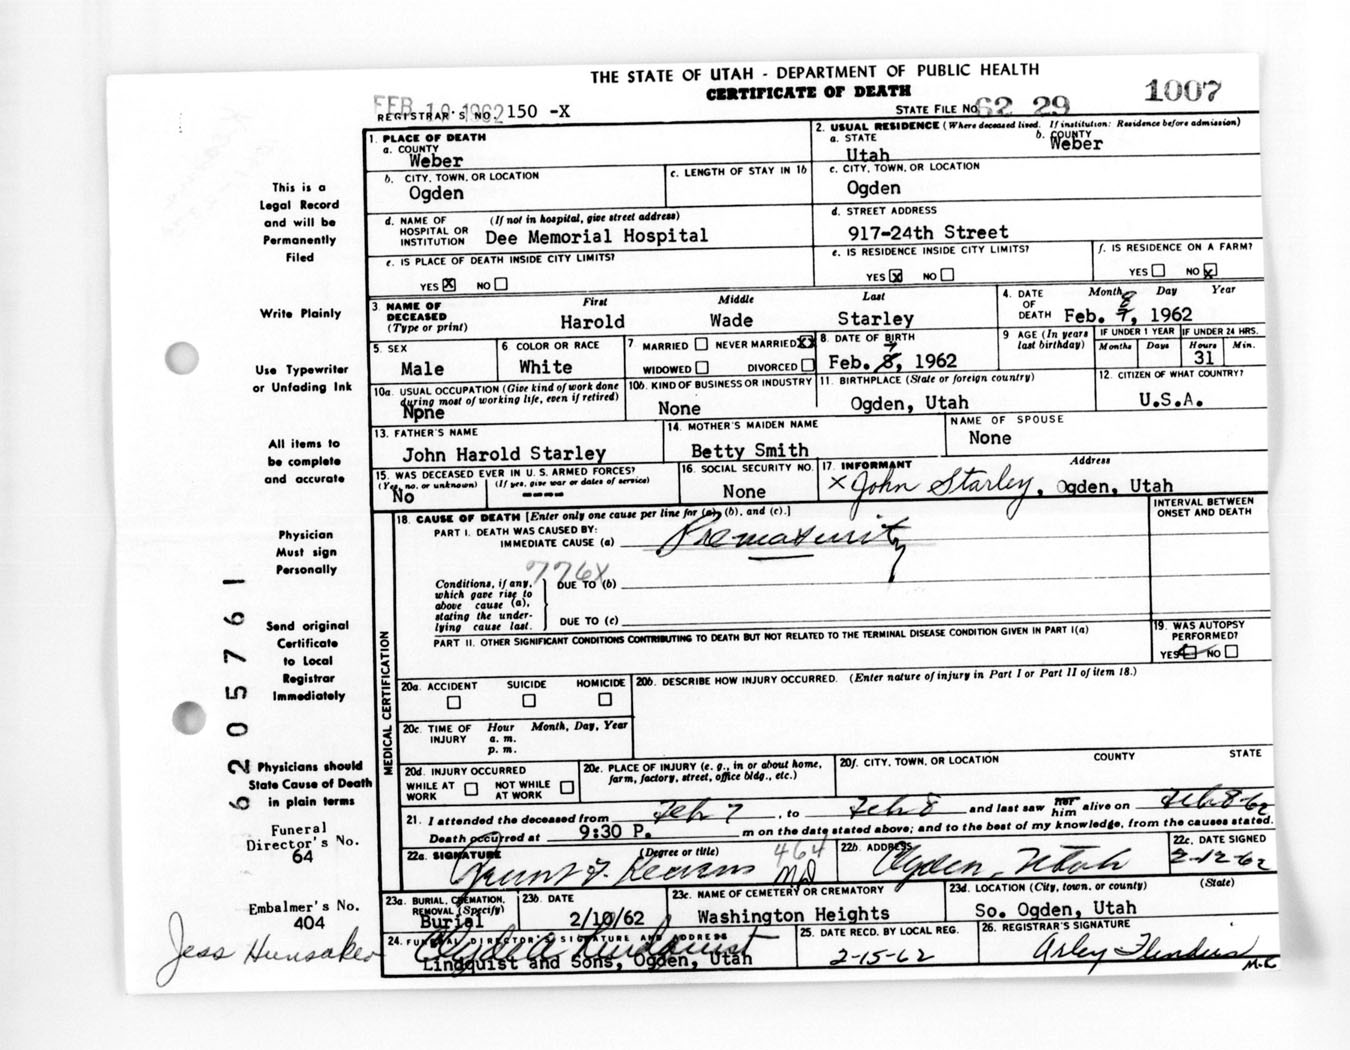 THE STATE OF UTAH - DEPARTMENT OF PUBLIC HEALTH
CERTIFICATE OF DEATH
1007
FEB 19 1962
REGISTRAR'S NO. 150 -X
STATE FILE NO. 62 29
1. PLACE OF DEATH
a. COUNTY
Weber
2. USUAL RESIDENCE (Where deceased lived. If institution: Residence before admission)
a. STATE
Utah
b. COUNTY
Weber
b. CITY, TOWN, OR LOCATION
Ogden
c. LENGTH OF STAY IN 1b
c. CITY, TOWN, OR LOCATION
Ogden
d. NAME OF HOSPITAL OR INSTITUTION
(If not in hospital, give street address)
Dee Memorial Hospital
d. STREET ADDRESS
917-24th Street
e. IS PLACE OF DEATH INSIDE CITY LIMITS?
YES X NO
e. IS RESIDENCE INSIDE CITY LIMITS?
YES X NO
f. IS RESIDENCE ON A FARM?
YES NO X
3. NAME OF DECEASED (Type or print)
First Middle Last
Harold Wade Starley
4. DATE OF DEATH
Month Day Year
8
Feb. 7, 1962
5. SEX
Male
6 COLOR OR RACE
White
7 MARRIED NEVER MARRIED XX
WIDOWED DIVORCED
8. DATE OF BIRTH
7
Feb. 8, 1962
9 AGE (In years last birthday)
IF UNDER 1 YEAR
Months Days
IF UNDER 24 HRS.
Hours Min.
31
10a. USUAL OCCUPATION (Give kind of work done during most of working life, even if retired)
None
10b. KIND OF BUSINESS OR INDUSTRY
None
11. BIRTHPLACE (State or foreign country)
Ogden, Utah
12. CITIZEN OF WHAT COUNTRY?
U.S.A.
13. FATHER'S NAME
John Harold Starley
14. MOTHER'S MAIDEN NAME
Betty Smith
NAME OF SPOUSE
None
15. WAS DECEASED EVER IN U. S. ARMED FORCES?
(Yes, no, or unknown) (If yes, give war or dates of service)
No ----
16. SOCIAL SECURITY NO.
None
17. INFORMANT Address
x John Starley, Ogden, Utah
MEDICAL CERTIFICATION
18. CAUSE OF DEATH [Enter only one cause per line for (a), (b), and (c).]
INTERVAL BETWEEN ONSET AND DEATH
PART I. DEATH WAS CAUSED BY:
IMMEDIATE CAUSE (a) Prematurity
776X
Conditions, if any, which gave rise to above cause (a), stating the underlying cause last.
DUE TO (b)
DUE TO (c)
PART II. OTHER SIGNIFICANT CONDITIONS CONTRIBUTING TO DEATH BUT NOT RELATED TO THE TERMINAL DISEASE CONDITION GIVEN IN PART I(a)
19. WAS AUTOPSY PERFORMED?
YES NO
20a. ACCIDENT SUICIDE HOMICIDE
20b. DESCRIBE HOW INJURY OCCURRED. (Enter nature of injury in Part I or Part II of item 18.)
20c. TIME OF INJURY
Hour Month, Day, Year
a. m.
p. m.
20d. INJURY OCCURRED
WHILE AT WORK NOT WHILE AT WORK
20e. PLACE OF INJURY (e. g., in or about home, farm, factory, street, office bldg., etc.)
20f. CITY, TOWN, OR LOCATION COUNTY STATE
21. I attended the deceased from Feb 7, to Feb 8 and last saw her him alive on Feb 8-62
Death occurred at 9:30 P. m on the date stated above; and to the best of my knowledge, from the causes stated.
22a. SIGNATURE (Degree or title)
464
MD
22b. ADDRESS
Ogden, Utah
22c. DATE SIGNED
2-12-62
23a. BURIAL, CREMATION, REMOVAL (Specify)
Burial
23b. DATE
2/10/62
23c. NAME OF CEMETERY OR CREMATORY
Washington Heights
23d. LOCATION (City, town, or county) (State)
So. Ogden, Utah
24. FUNERAL DIRECTOR'S SIGNATURE AND ADDRESS
Clyde A Lindquist
Lindquist and Sons, Ogden, Utah
25. DATE RECD. BY LOCAL REG.
2-15-62
26. REGISTRAR'S SIGNATURE
Arley Flinders
This is a
Legal Record
and will be
Permanently
Filed
Write Plainly
Use Typewriter
or Unfading Ink
All items to
be complete
and accurate
Physician
Must sign
Personally
Send original
Certificate
to Local
Registrar
Immediately
Physicians should
State Cause of Death
in plain terms
Funeral
Director's No.
64
Embalmer's No.
404
Jess Hunsaker
62 05761